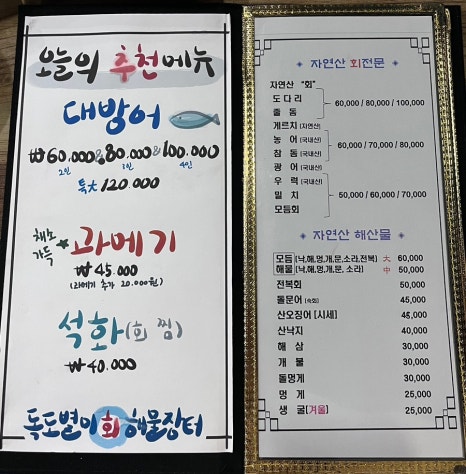 오늘의 추천메뉴
대방어
₩60.000 & 80.000 & 100.000
2인 3인 4인
특大 120.000
채소가득 * 과메기
₩45.000
(과메기 추가 20.000원)
석화(회 찜)
₩40.000
독도별미 회 해물장터
자연산 회전문
자연산 "회"
도 다 리
줄 돔
60,000 / 80,000 / 100,000
게르치 (자연산)
농 어 (국내산)
참 돔 (국내산)
광 어 (국내산)
60,000 / 70,000 / 80,000
우 럭 (국내산)
밀 치
모듬회
50,000 / 60,000 / 70,000
자연산 해산물
모듬 (낙,해,멍,개,문,소라,전복) 大 60,000
해물 (낙,해,멍,개,문, 소라) 中 50,000
전복회 50,000
돌문어 (숙회) 45,000
산오징어 [시세] 45,000
산낙지 40,000
해 삼 30,000
개 불 30,000
돌멍게 30,000
멍 게 25,000
생 굴 [겨울] 25,000